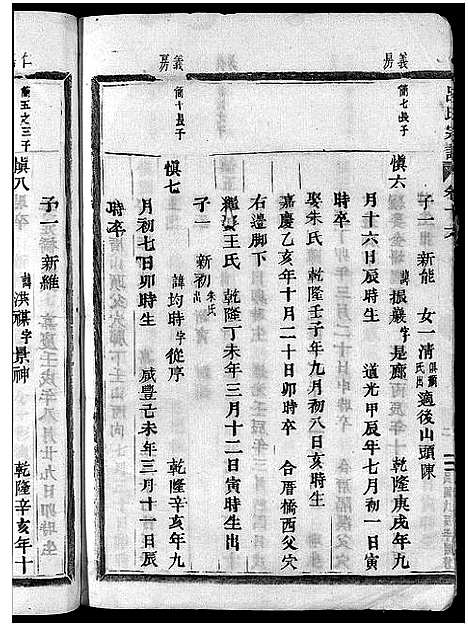 呂氏宗譜 卷十六
義房
簡七長子
慎六 諱振巖字是廊 乾隆庚戌年九
月十六日辰時生 道光甲辰年七月初一日寅
時卒
娶朱氏 乾隆壬子年九月初八日亥時生
嘉慶乙亥年十月二十日卯時卒 合厝橋西父穴
右邉脚下
繼娶王氏 乾隆丁未年三月十二日寅時生出
子一 新能 女一清 俱顓氏出 適後山頭陳
子一 新初 朱氏出
義房
簡十長子
慎七 諱均時字從序 乾隆辛亥年九
月初七日卯時生 咸豐己未年三月十一日辰
時卒
子一 新維
仁
簡五之三子
慎八 諱洪禖字景神 乾隆辛亥年十